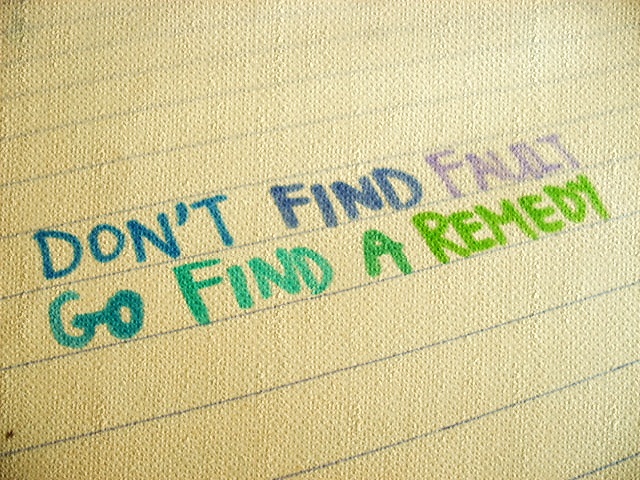 DON'T FIND FAULT
GO FIND A REMEDY